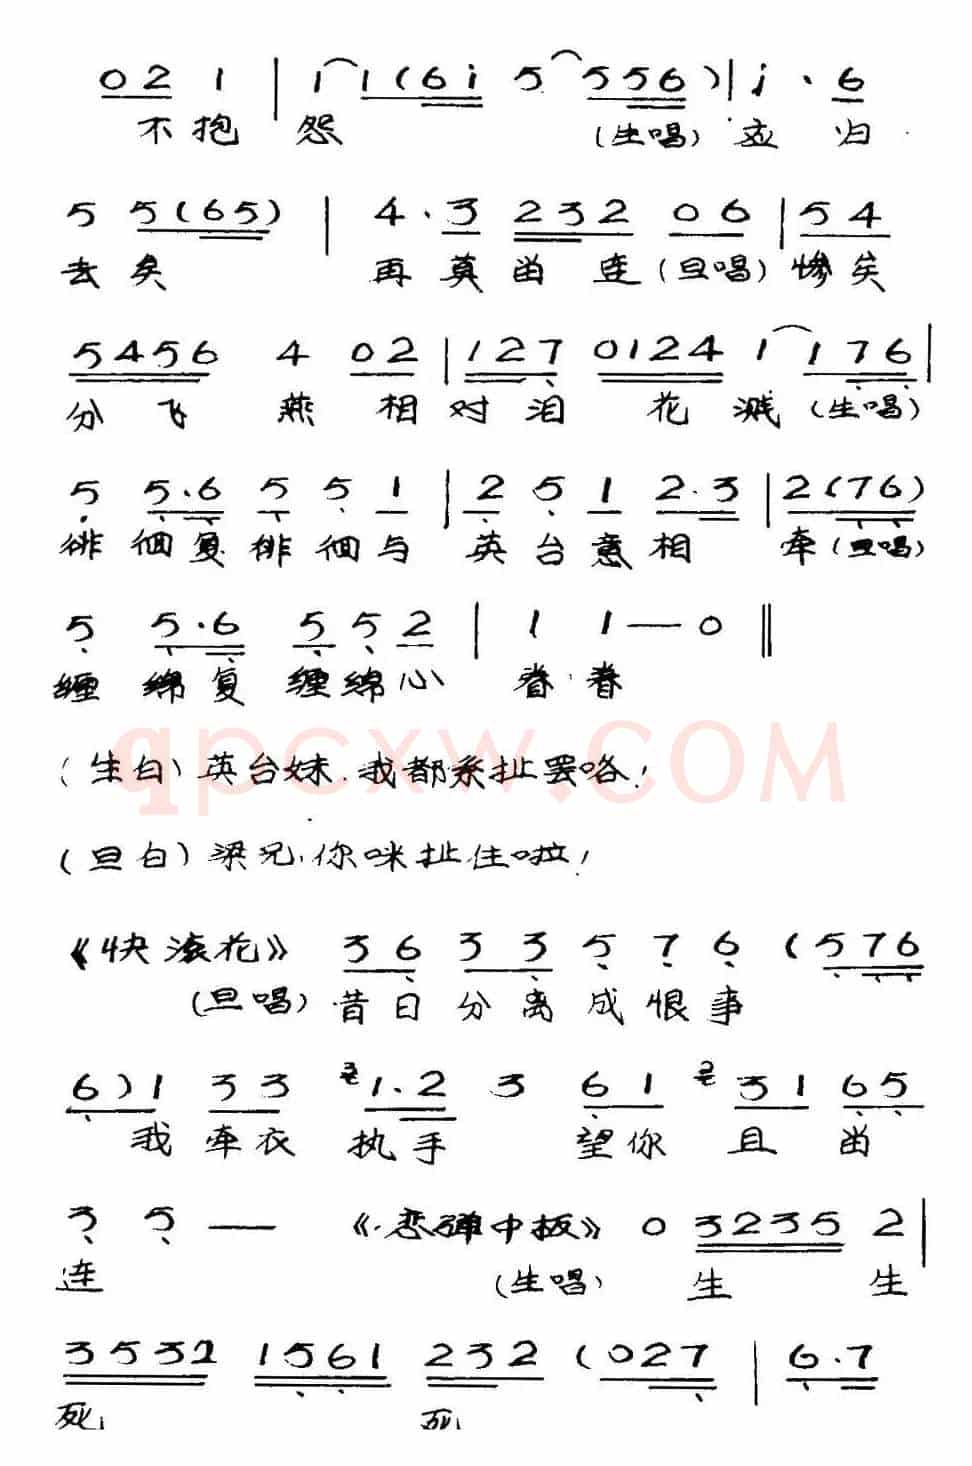 0 2 1 | 1 1 (6 i 5 5 5 6) | i · 6
不抱怨 (生唱) 应归
5 5 (6 5) | 4 · 3 2 3 2 0 6 | 5 4
去矣 再莫留连 (旦唱) 惨矣
5 4 5 6 4 0 2 | 1 2 7 0 1 2 4 1 1 7 6 |
分飞燕相对泪花溅 (生唱)
5 5 · 6 5 5 1 | 2 5 1 2 · 3 | 2 (7 6)
徘徊复徘徊与英台意相牵 (旦唱)
5 5 · 6 5 5 2 | 1 1 — 0 ‖
缠绵复缠绵心眷眷
qpcxw.COM
(生白) 英台妹，我都系扯罢咯！
(旦白) 梁兄，你咪扯住啦！
《快滚花》 3 6 3 3 5 7 6 (5 7 6
(旦唱) 昔日分离成恨事
6) 1 3 3 1 · 2 3 6 1 3 1 6 5
我牵衣执手望你且留
3 5 — 《恋弹中板》 0 3 2 3 5 2 |
连 (生唱) 生生
3 5 3 2 1 5 6 1 2 3 2 (0 2 7 | 6 · 7
死死